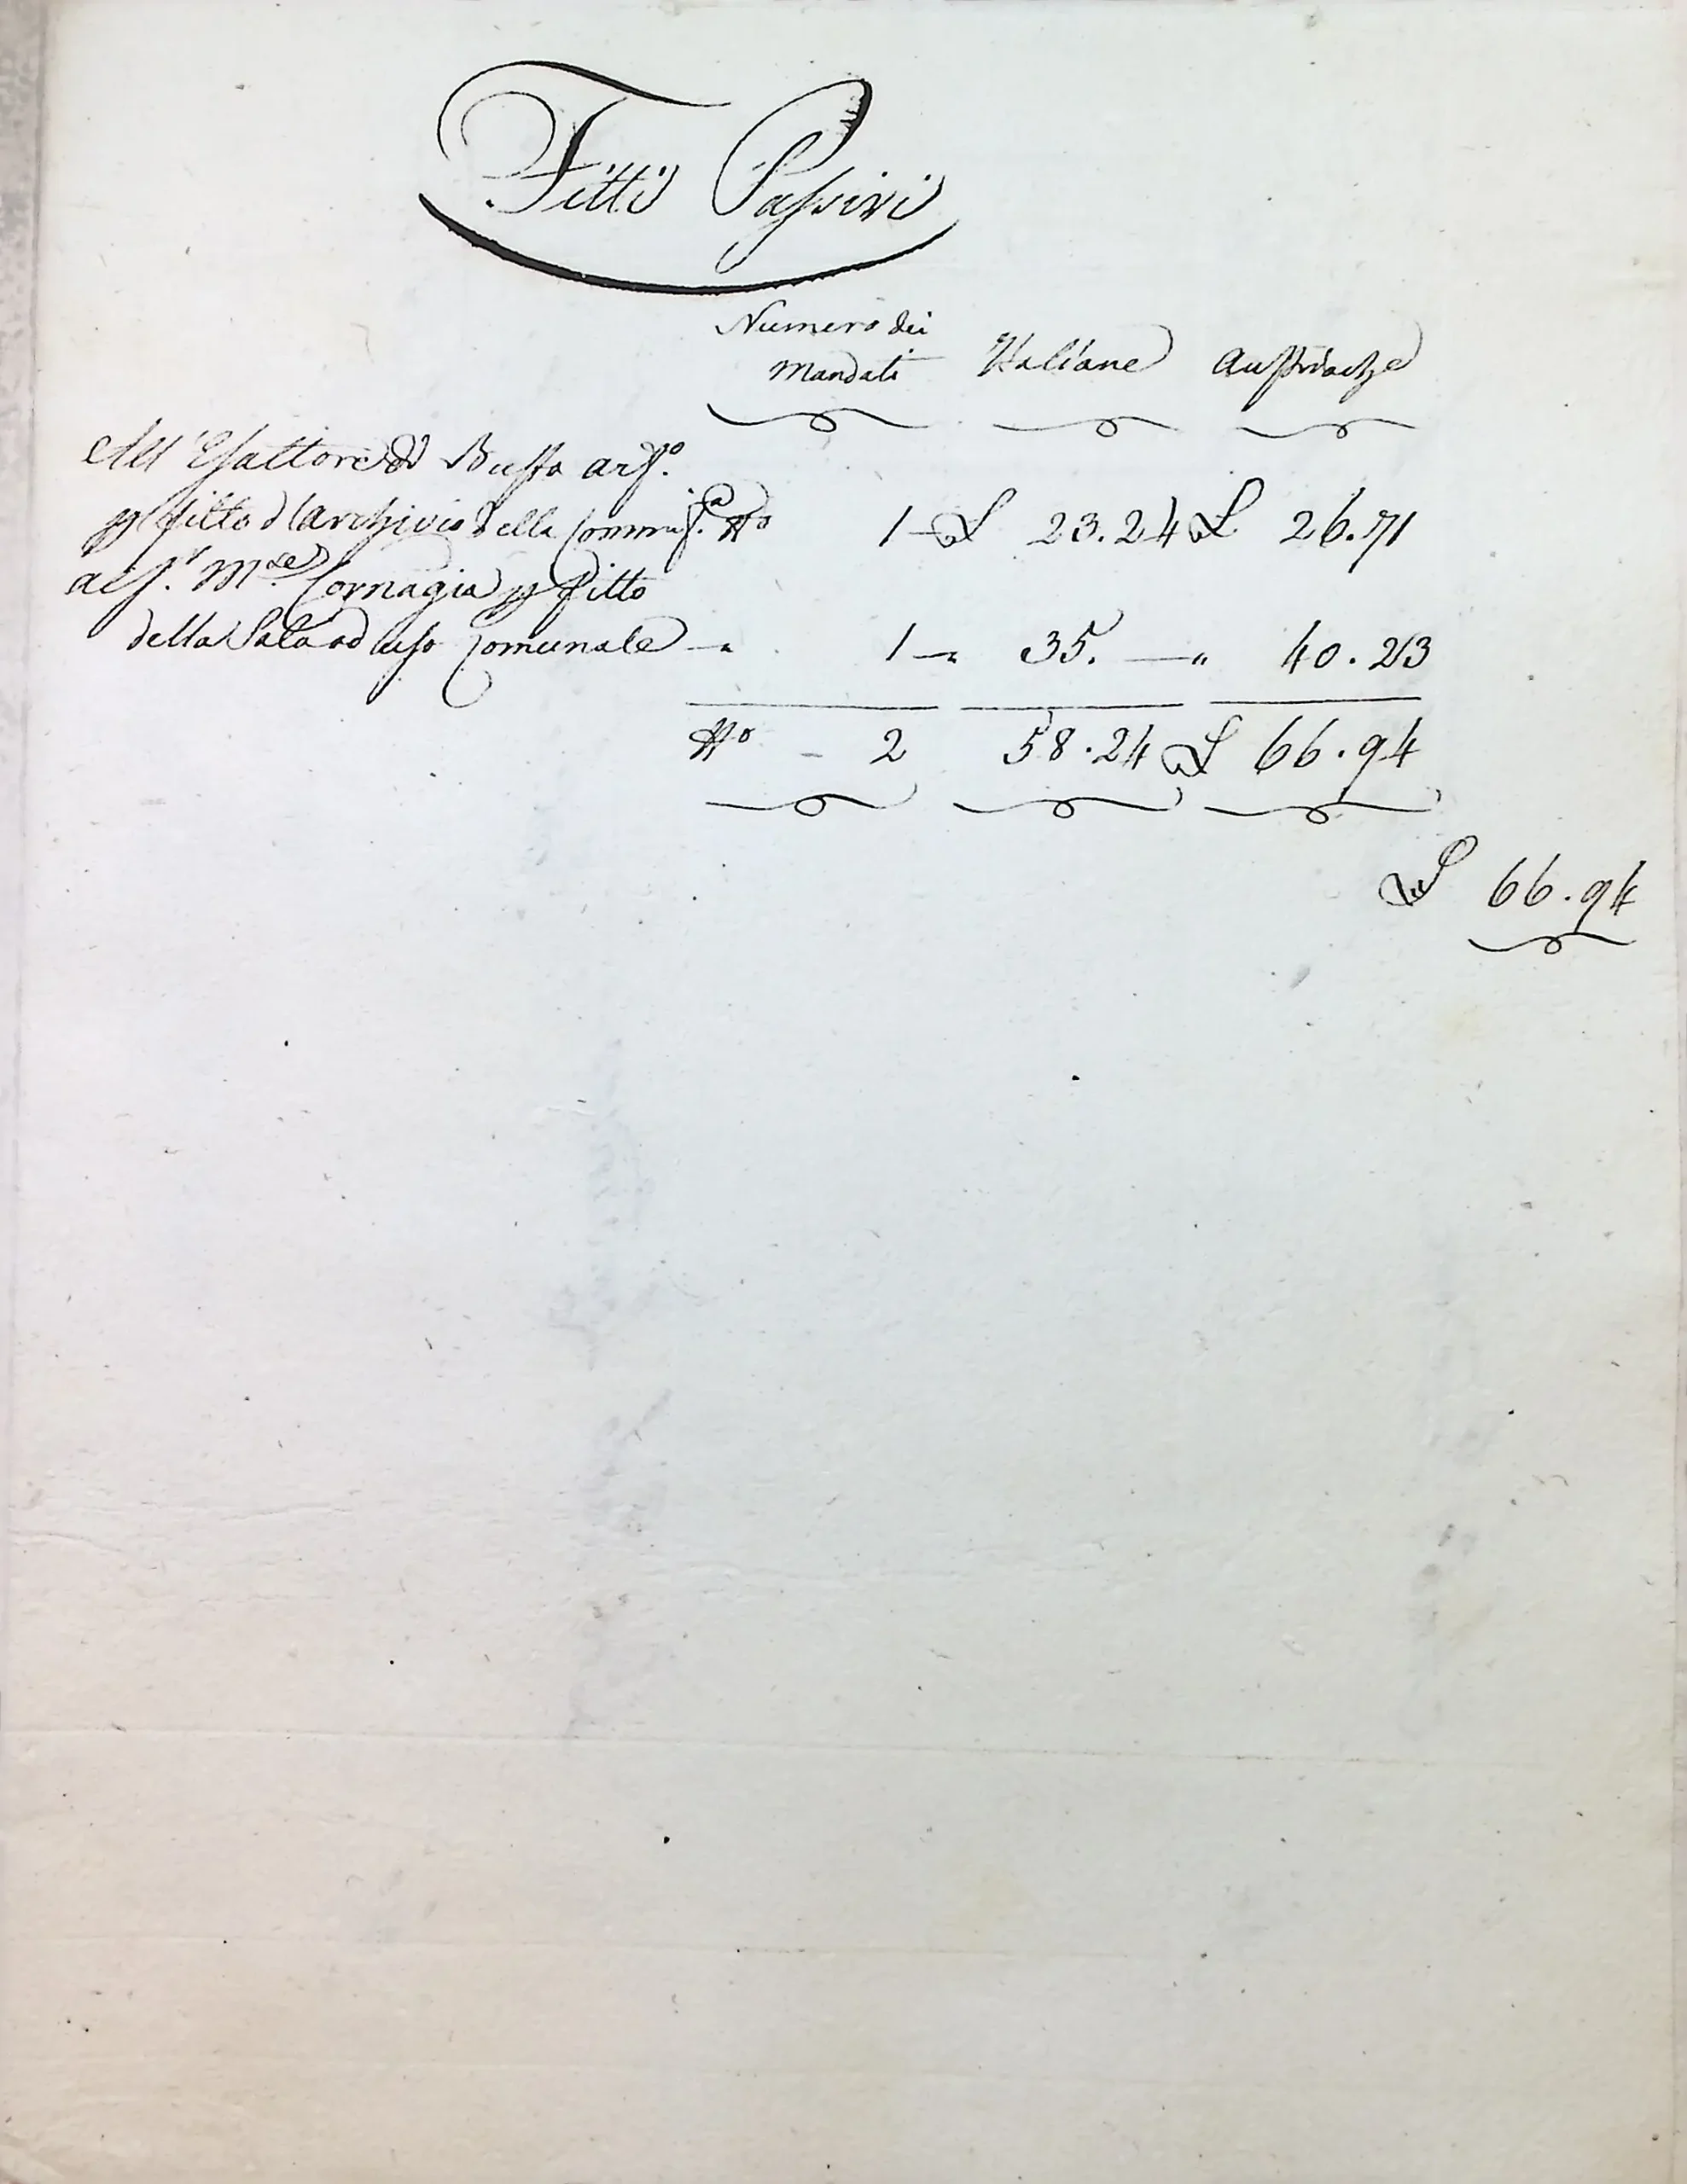 Fitti Passivi
Numero dei
Mandati Italiane Austriache
All'Esattore di Busto ars.o
p fitto d'archivio della Commis.a N.o 1 – L 23.24 L 26.71
al S.r M.se Cornagia p fitto
della Sala ad uso Comunale – " 1 – " 35. — " 40.23
N.o – 2 58.24 L 66.94
L 66.94